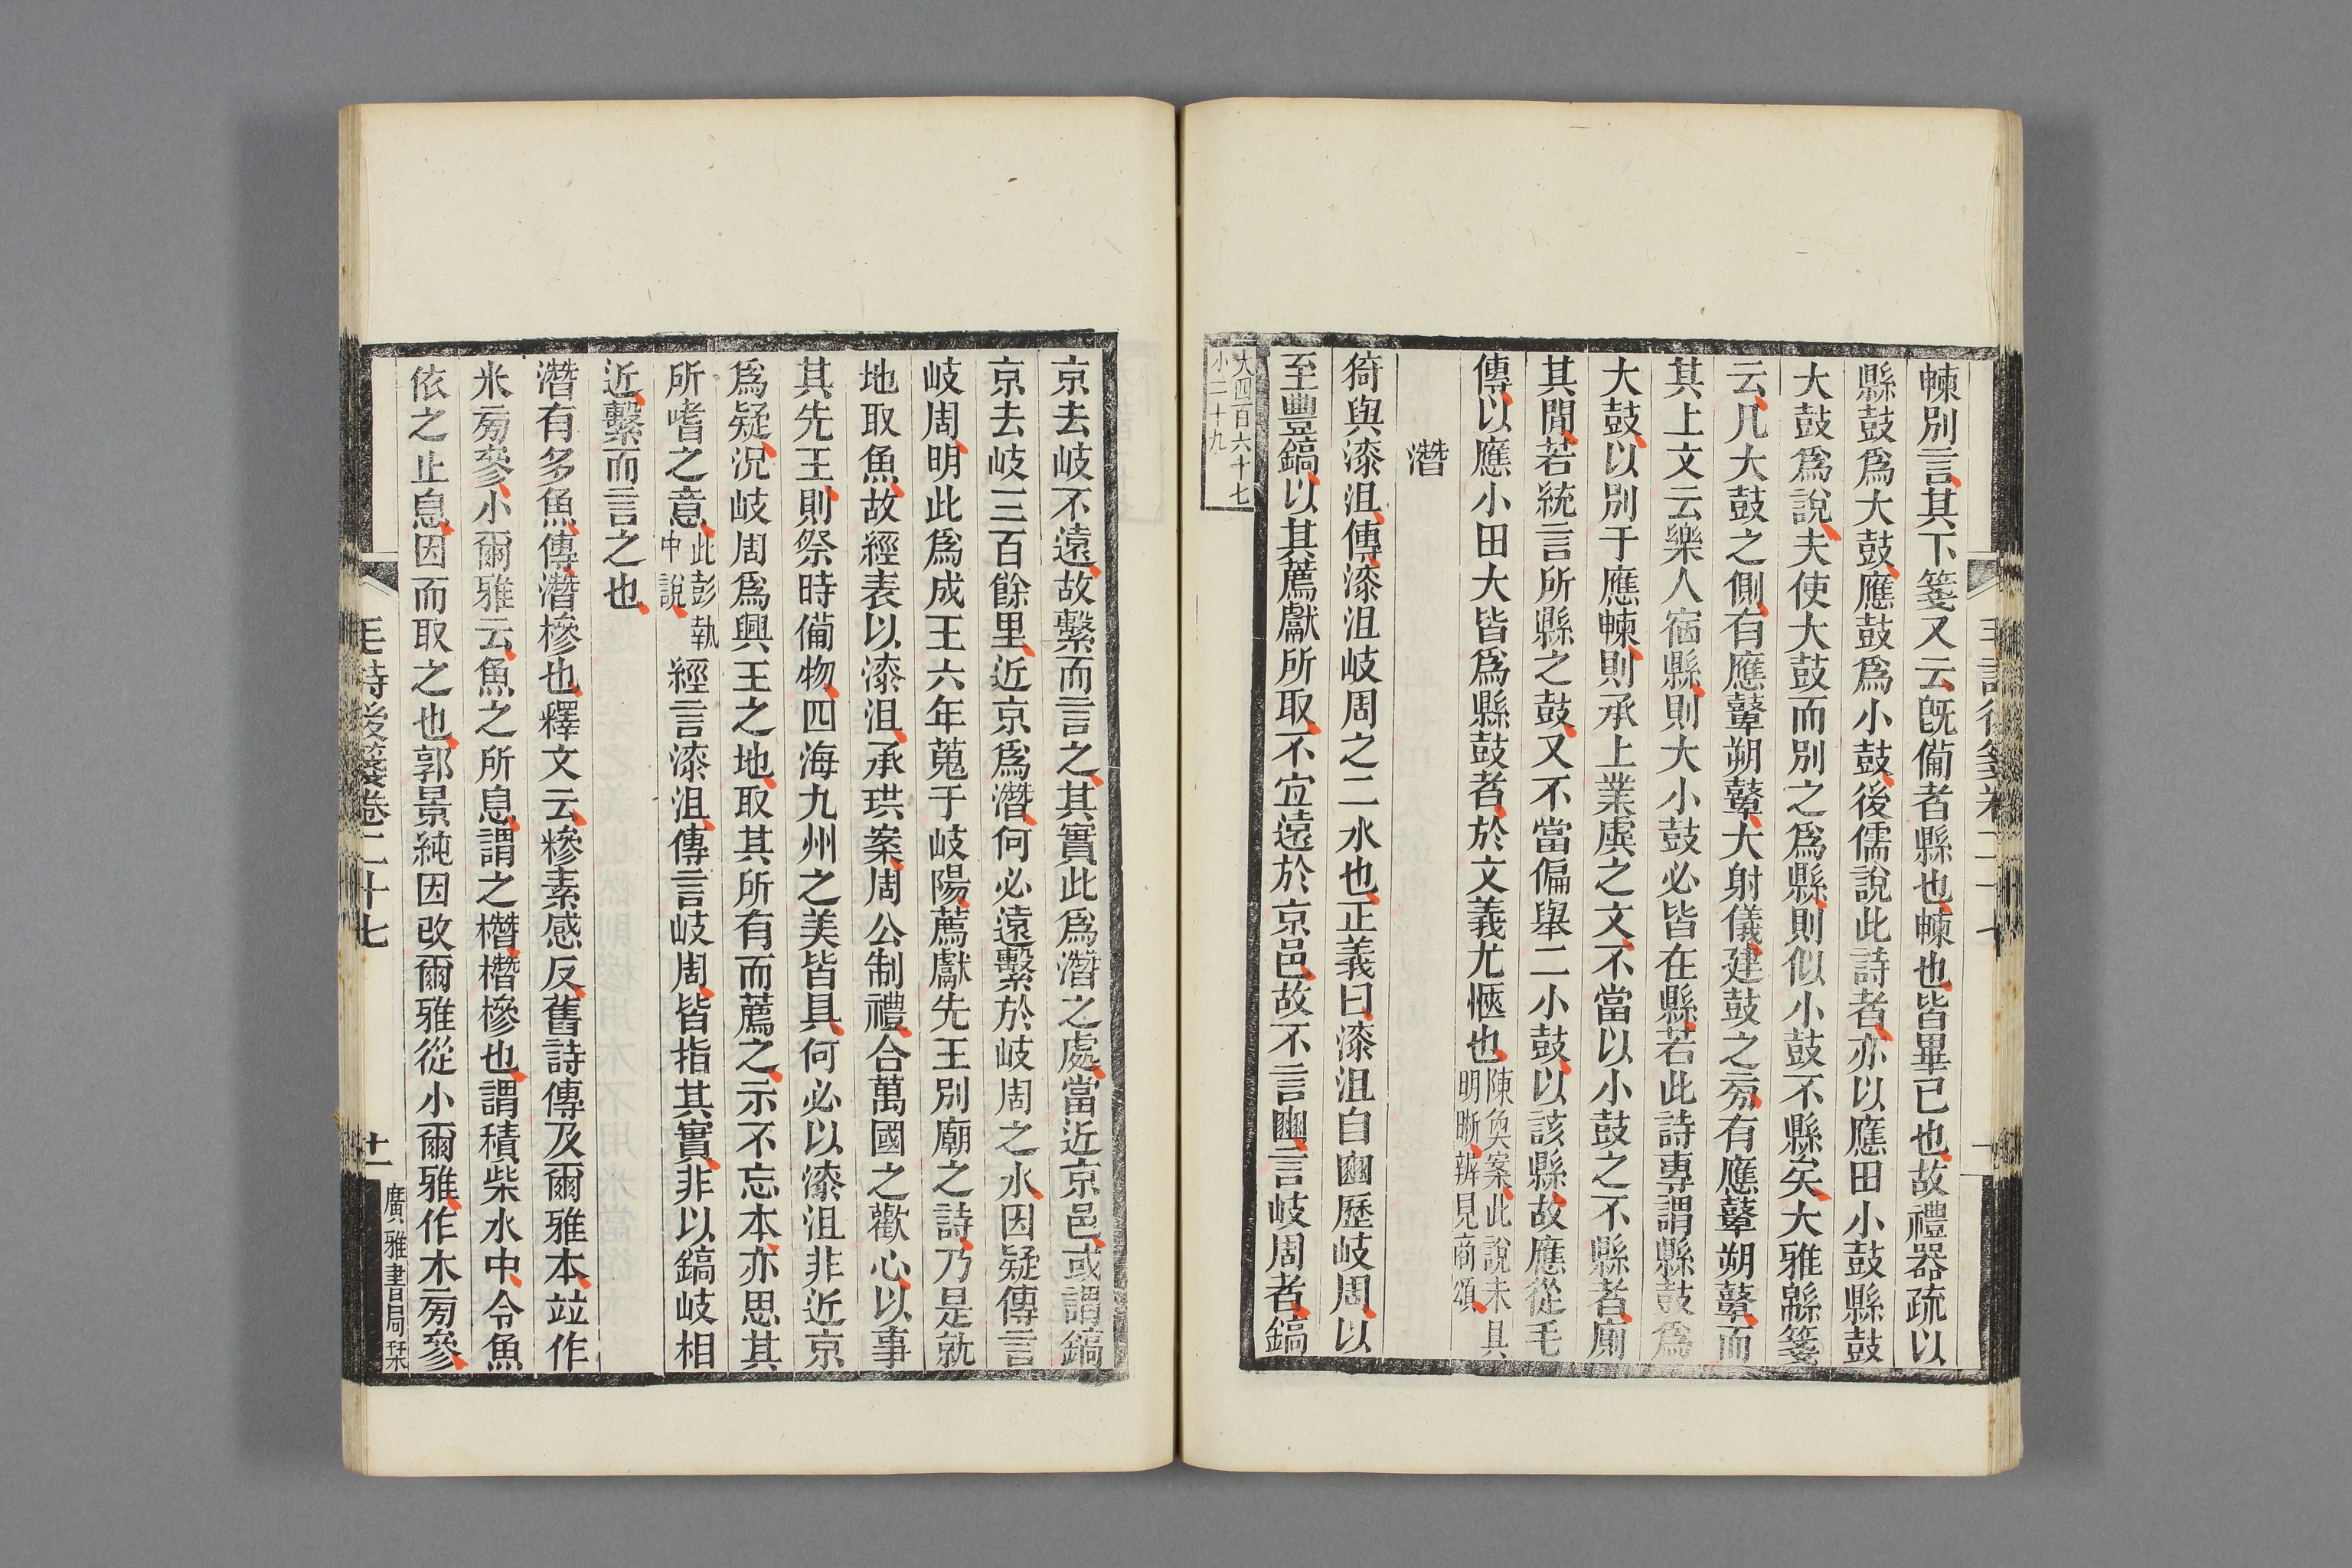 𣌾別言其下箋又云既備者縣也𣌾也皆畢已也故禮器疏以
縣鼓爲大鼓應鼓爲小鼓後儒說此詩者亦以應田小鼓縣鼓
大鼓爲說夫使大鼓而別之爲縣則似小鼓不縣矣大雅緜箋
云凡大鼓之側有應鼙朔鼙大射儀建鼓之旁有應鼙朔鼙而
其上文云樂人宿縣則大小鼓必皆在縣若此詩專謂縣鼓爲
大鼓以別于應𣌾則承上業虡之文不當以小鼓之不縣者廁
其閒若統言所縣之鼓又不當偏舉二小鼓以該縣故應從毛
傳以應小田大皆爲縣鼓者於文義尤愜也陳奐案此說未具
明晰辨見商頌
潛
猗與漆沮傳漆沮岐周之二水也正義曰漆沮自豳歷岐周以
至豐鎬以其薦獻所取不宜遠於京邑故不言豳言岐周者鎬
大四百六十七
小二十九
京去岐不遠故繫而言之其實此爲潛之處當近京邑或謂鎬
京去岐三百餘里近京爲潛何必遠繫於岐周之水因疑傳言
岐周明此爲成王六年蒐于岐陽薦獻先王別廟之詩乃是就
地取魚故經表以漆沮承珙案周公制禮合萬國之歡心以事
其先王則祭時備物四海九州之美皆具何必以漆沮非近京
爲疑況岐周爲興王之地取其所有而薦之示不忘本亦思其
所嗜之意此彭執
中說經言漆沮傳言岐周皆指其實非以鎬岐相
近繫而言之也
潛有多魚傳潛槮也釋文云糝素感反舊詩傳及爾雅本竝作
米旁參小爾雅云魚之所息謂之橬橬槮也謂積柴水中令魚
依之止息因而取之也郭景純因改爾雅從小爾雅作木旁參
毛詩後箋卷二十七
十一
廣雅書局栞